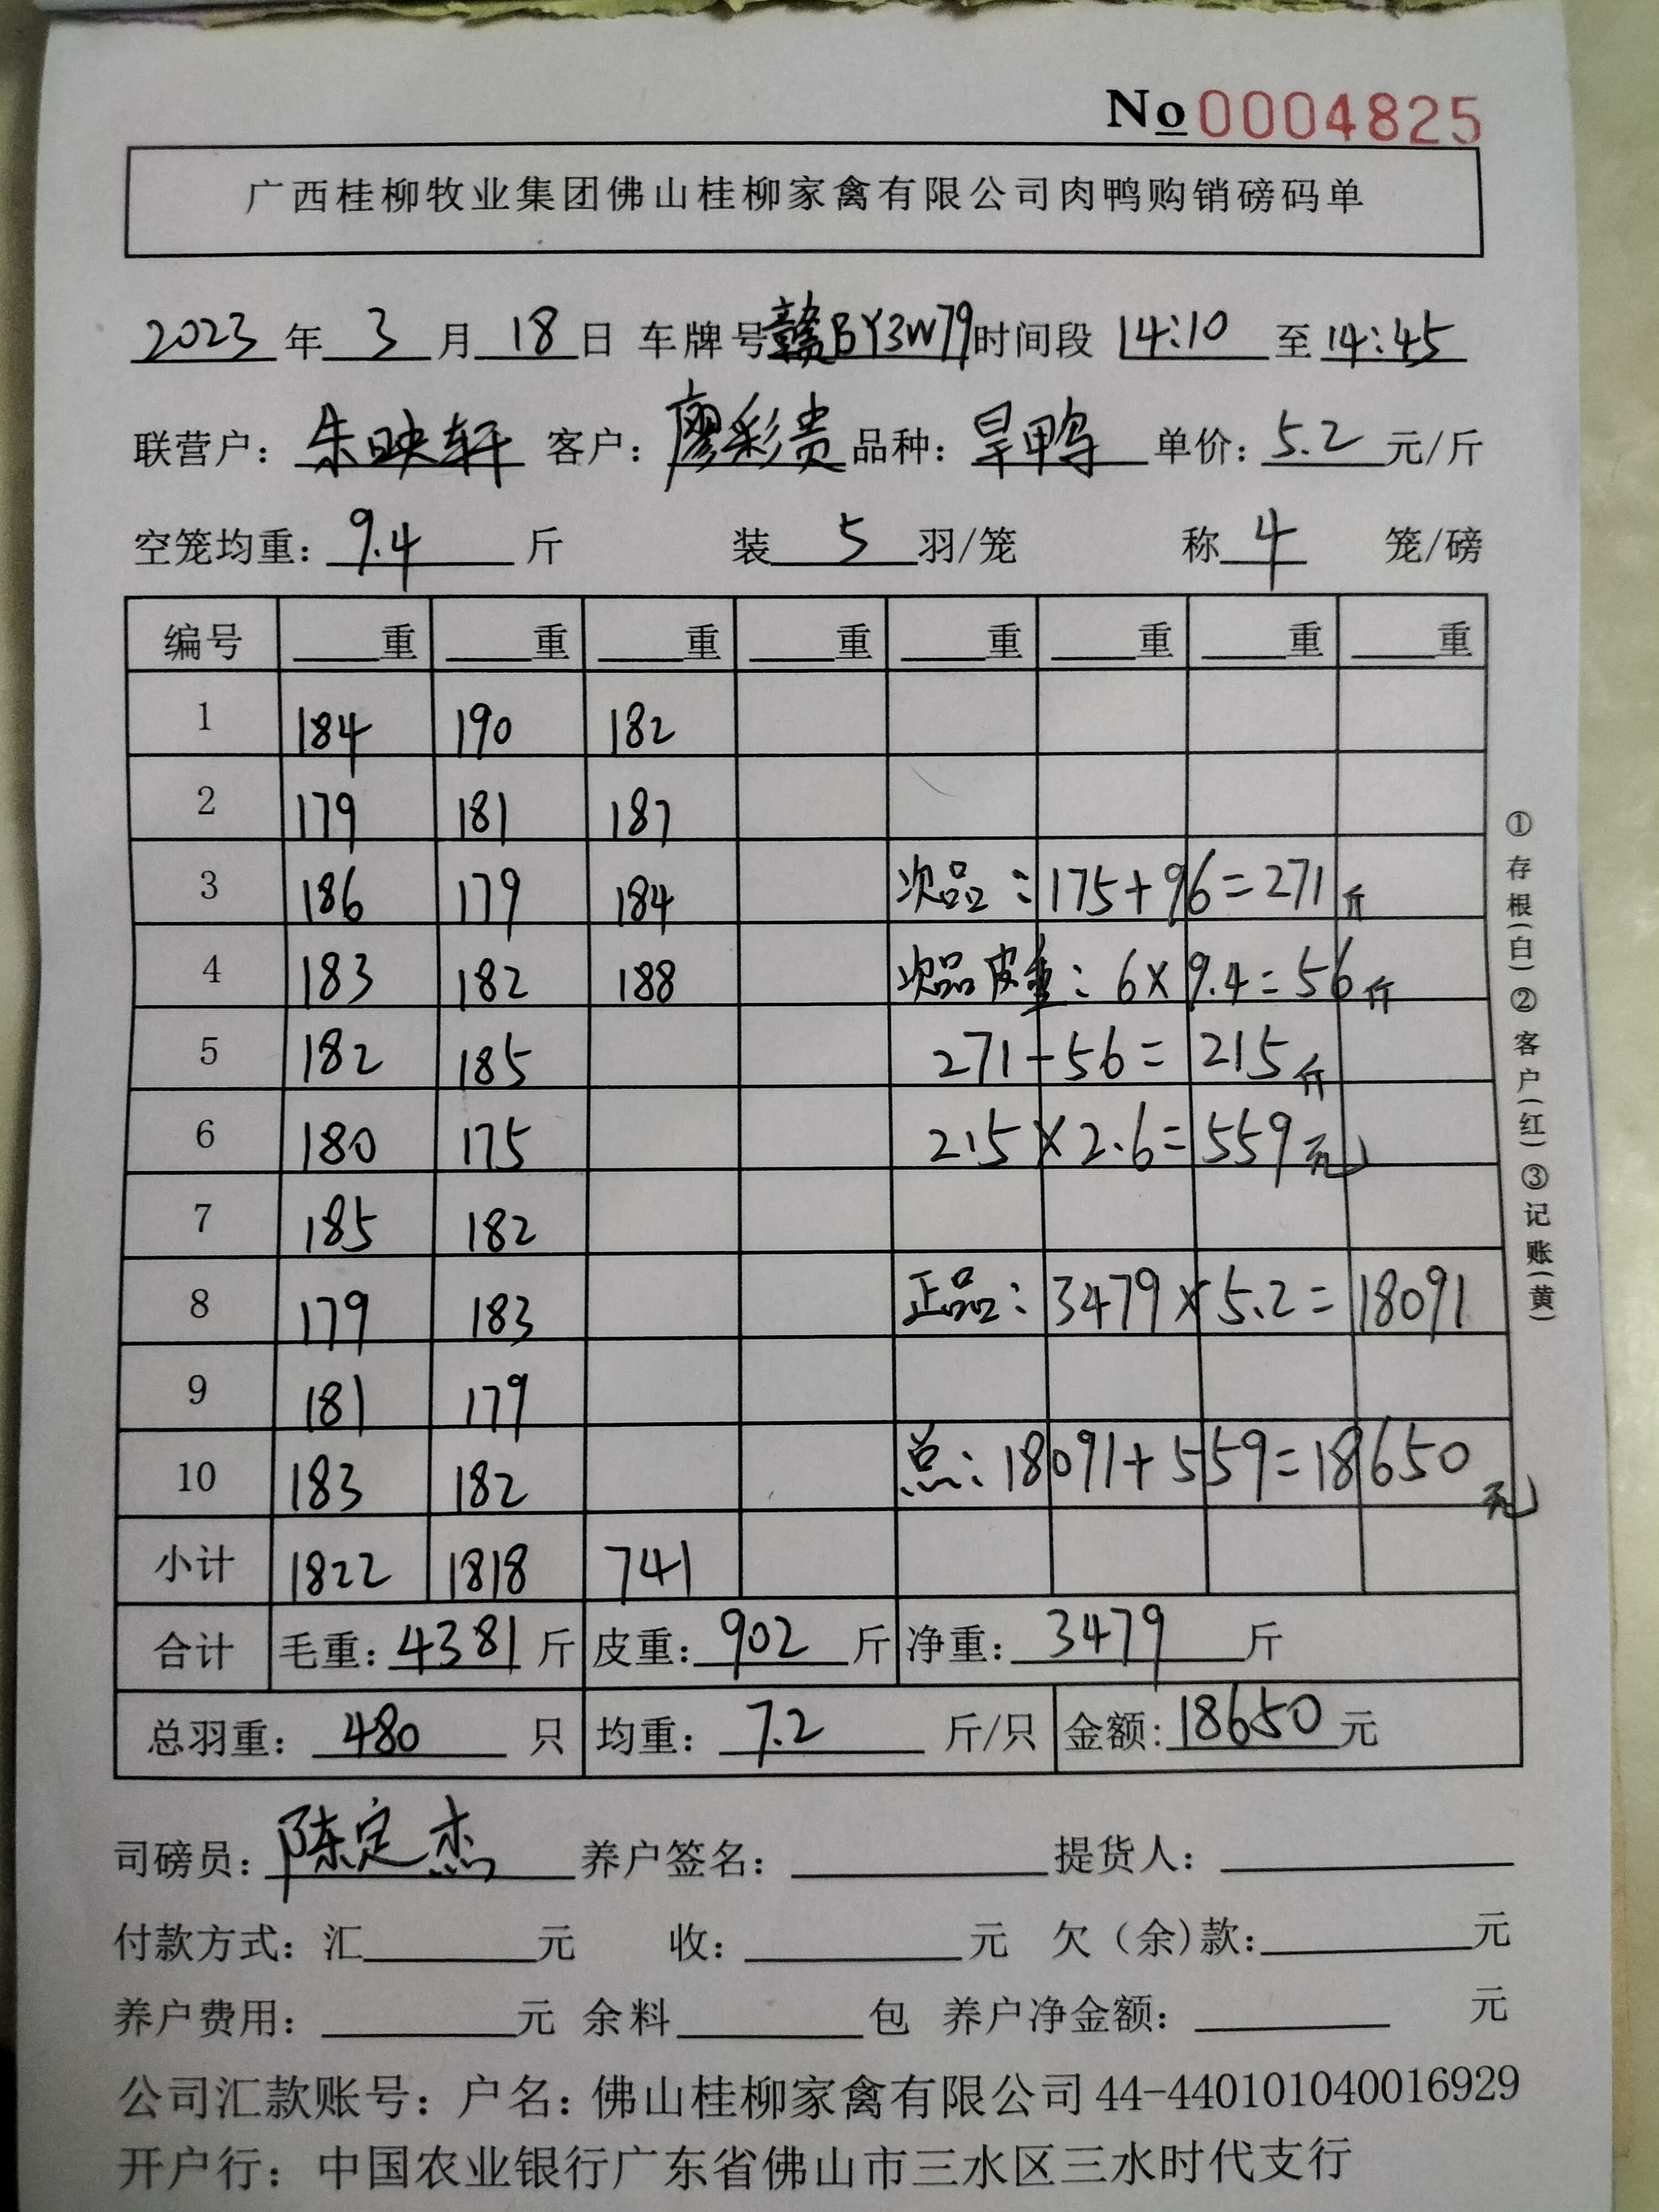 No 0004825
广西桂柳牧业集团佛山桂柳家禽有限公司肉鸭购销磅码单
2023 年 3 月 18 日 车牌号 赣BY3W79 时间段 14:10 至 14:45
联营户: 朱映轩 客户: 廖彩贵 品种: 旱鸭 单价: 5.2 元/斤
空笼均重: 9.4 斤 装 5 羽/笼 称 4 笼/磅
编号 ___重 ___重 ___重 ___重 ___重 ___重 ___重 ___重
1 184 190 182
2 179 181 187
3 186 179 184 次品: 175+96=271斤
4 183 182 188 次品皮重: 6×9.4=56斤
5 182 185 271-56=215斤
6 180 175 215×2.6=559元
7 185 182
8 179 183 正品: 3479×5.2=18091
9 181 179
10 183 182 总: 18091+559=18650元
小计 1822 1818 741
合计 毛重: 4381 斤 皮重: 902 斤 净重: 3479 斤
总羽重: 480 只 均重: 7.2 斤/只 金额: 18650 元
司磅员: 陈定杰 养户签名: 提货人:
付款方式: 汇______元 收: ______元 欠(余)款: ______元
养户费用: ______元 余料______包 养户净金额: ______ 元
公司汇款账号: 户名: 佛山桂柳家禽有限公司 44-440101040016929
开户行: 中国农业银行广东省佛山市三水区三水时代支行
①存根(白)②客户(红)③记账(黄)